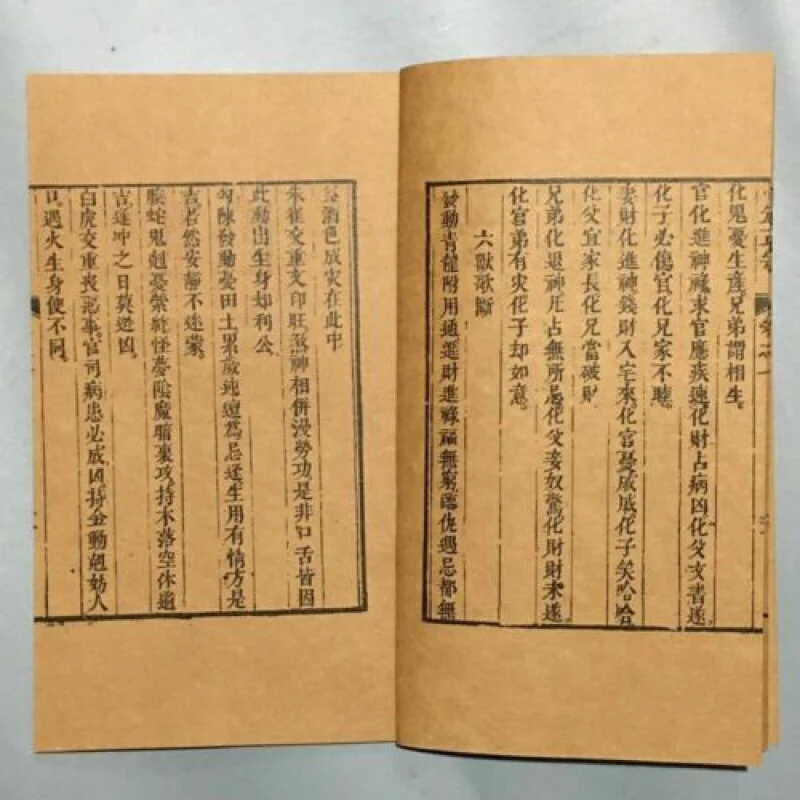 化鬼憂生產兄弟謂相生
官化進神祿求官應疾速化財占病凶化父文書遂
化子必傷官化兄家不睦
妻財化進神錢財入宅來化官憂戚戚化子笑哈哈
化父宜家長化兄當破財
兄弟化退神凡占無所忌化父妾奴驚化財財未遂
化官弟有灾化子却如意
六獸歌斷
發動青龍附用通進財進祿福無窮臨仇遇忌都無
益酒色成灾在此中
朱雀交重文印旺煞神相併漫勞功是非口舌皆因
此動出生身却利公
勾陳發動憂田土累歲迍邅爲忌逢生用有情方是
吉若然安靜不迷蒙
螣蛇鬼尅憂縈絆怪夢陰魔暗裏攻持木落空休道
吉逢冲之日莫逃凶
白虎交重喪惡事官司病患必成凶持金動尅妨人
口遇火生身便不同